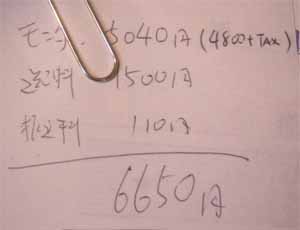 モニタ 5040円(4800+TAX)
送料 1500円
振込料 110円
6650円